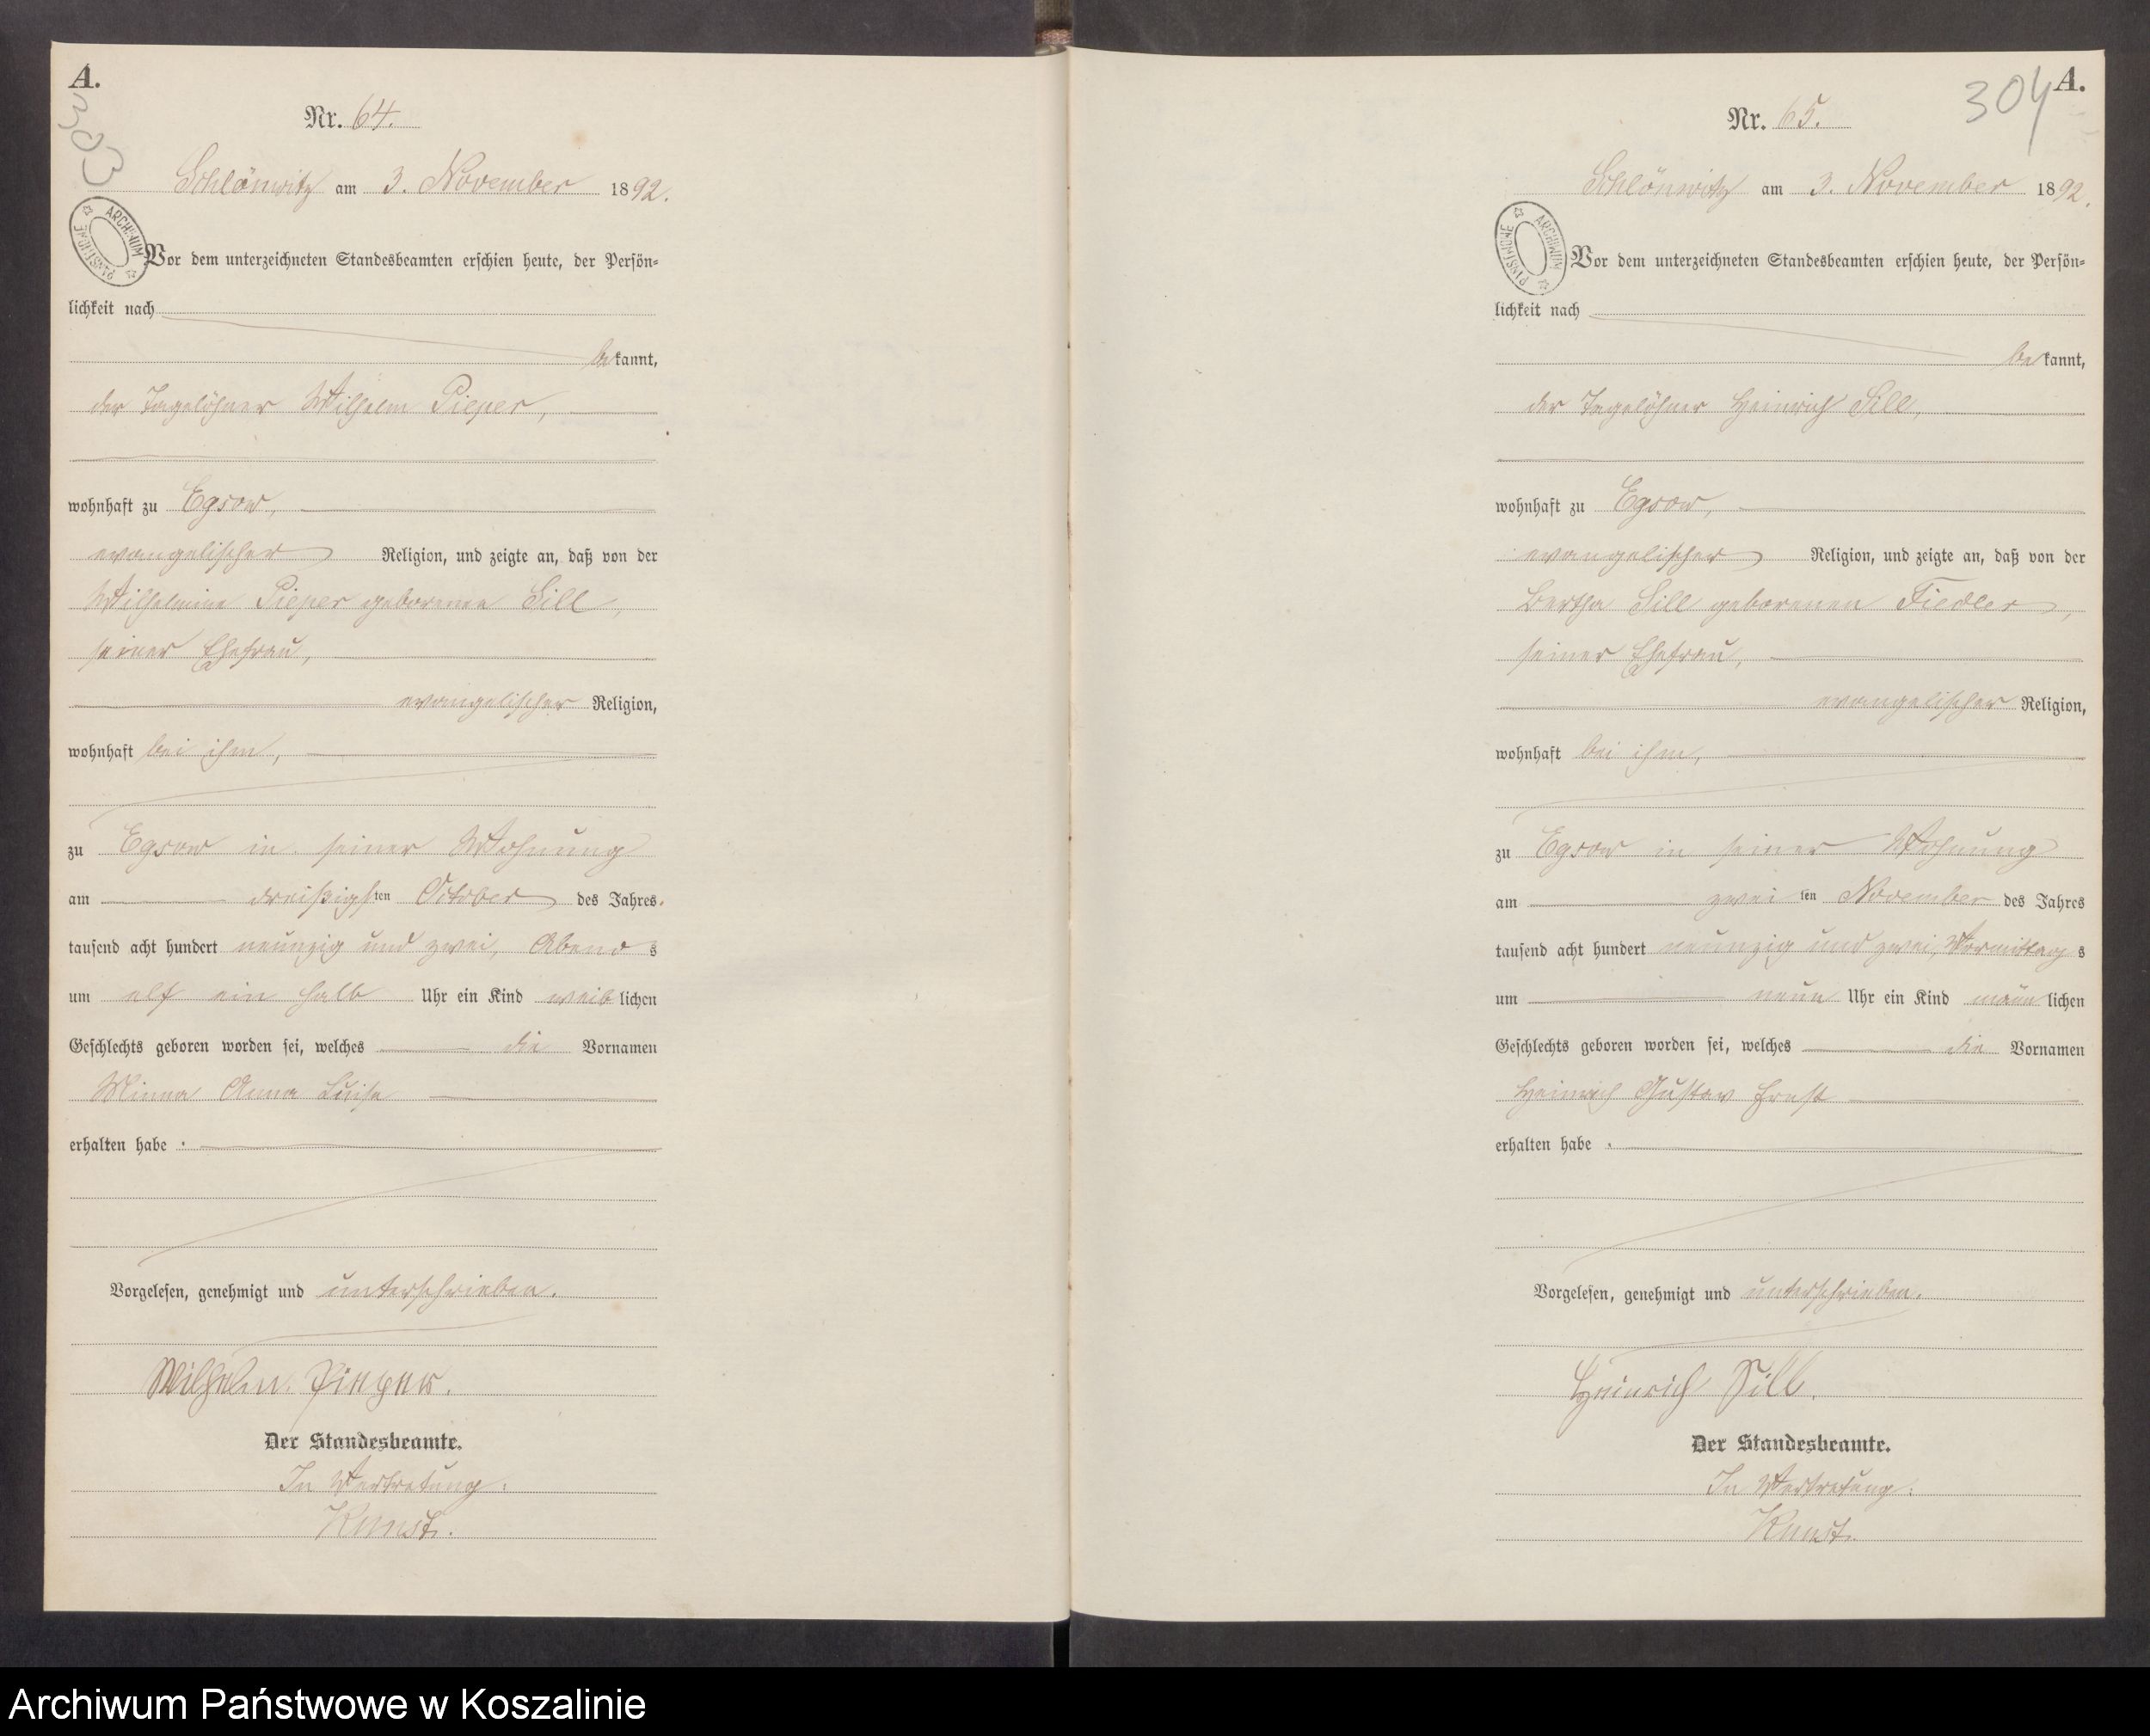 A.
303
Nr. 64.
Schlönwitz am 3. November 1892.
ARCHIWUM PAŃSTWOWE
Vor dem unterzeichneten Standesbeamten erschien heute, der Persön-
lichkeit nach
bekannt,
der Tagelöhner Wilhelm Pieper,
wohnhaft zu Egsow,
evangelischer Religion, und zeigte an, daß von der
Wilhelmine Pieper geborenen Sill,
seiner Ehefrau,
evangelischer Religion,
wohnhaft bei ihm,
zu Egsow in seiner Wohnung
am dreißigsten October des Jahres
tausend acht hundert neunzig und zwei, Abends
um elf ein halb Uhr ein Kind weiblichen
Geschlechts geboren worden sei, welches die Vornamen
Minna Anna Luise
erhalten habe.
Vorgelesen, genehmigt und unterschrieben.
Wilhelm Pieper.
Der Standesbeamte.
In Vertretung:
Kunst.
304 A.
Nr. 65.
Schlönwitz am 3. November 1892.
ARCHIWUM PAŃSTWOWE
Vor dem unterzeichneten Standesbeamten erschien heute, der Persön-
lichkeit nach
bekannt,
der Tagelöhner Heinrich Sill,
wohnhaft zu Egsow,
evangelischer Religion, und zeigte an, daß von der
Bertha Sill geborenen Fiedler,
seiner Ehefrau,
evangelischer Religion,
wohnhaft bei ihm,
zu Egsow in seiner Wohnung
am zweiten November des Jahres
tausend acht hundert neunzig und zwei, Vormittags
um neun Uhr ein Kind männlichen
Geschlechts geboren worden sei, welches die Vornamen
Heinrich Gustav Ernst
erhalten habe.
Vorgelesen, genehmigt und unterschrieben.
Heinrich Sill.
Der Standesbeamte.
In Vertretung:
Kunst.
Archiwum Państwowe w Koszalinie